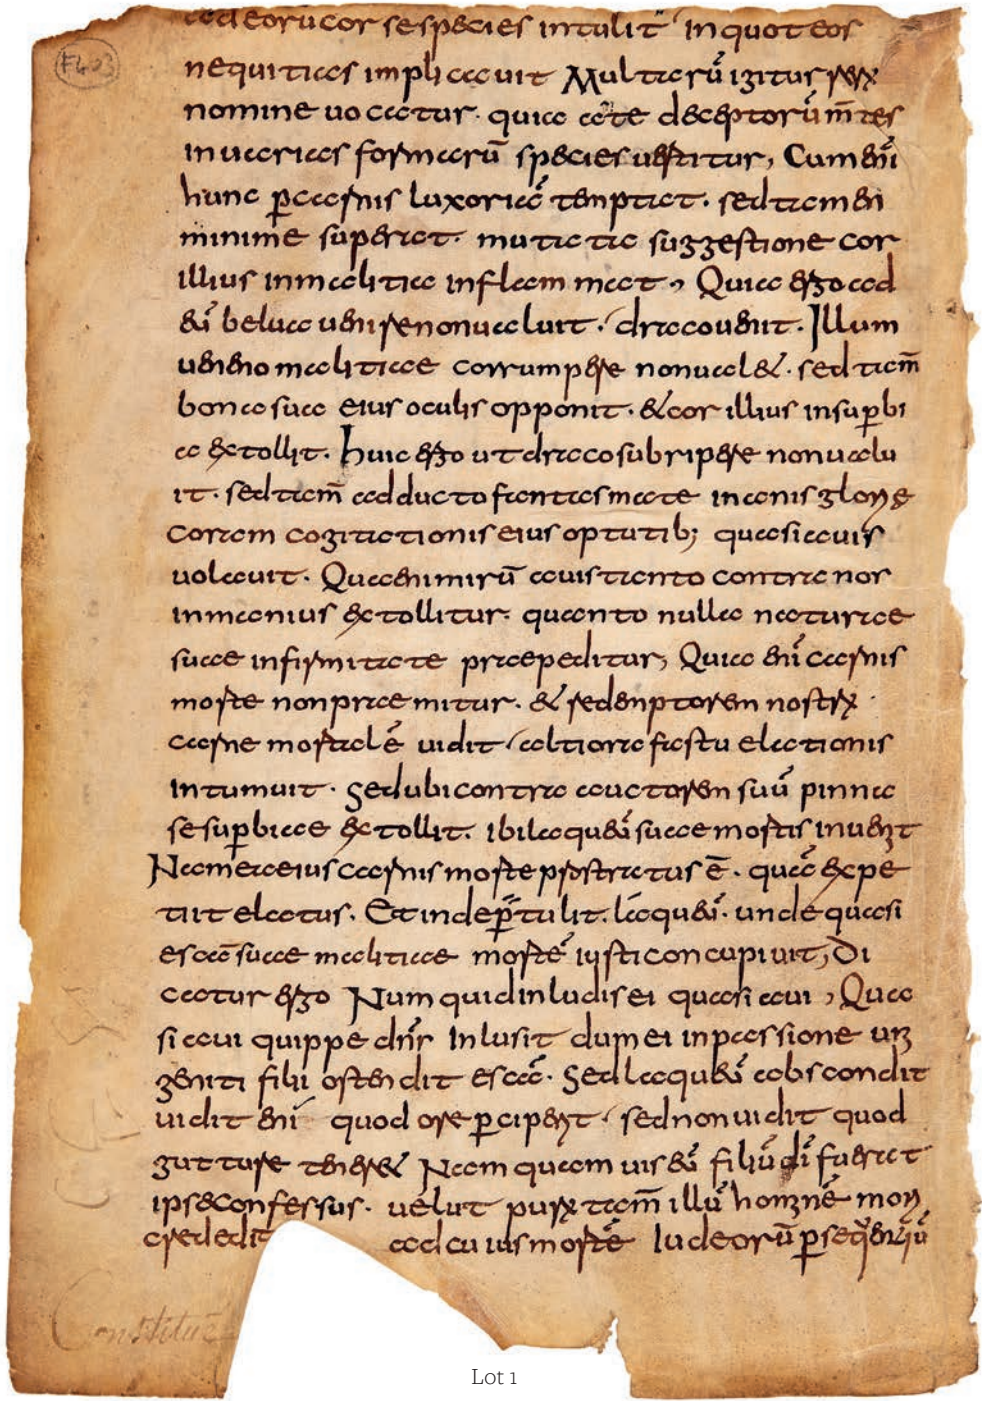 ad eorū cor se species intulit in quot eos
nequitias implicauit Multarū igitur rerꝝ
nomine uocatur. quia ante deceptorū m̄tes
in uarias formarū species uertitur, Cum enī
hunc ꝑcarnis luxoriā temptat. sed tamen
minime superat. mutata suggestione cor
illius in malitia inflammat, Quia ergo ad
eū belua uenire non ualuit. draco uenit. Illum
ueneno malitiae corrumpere non ualet. sed tam̄
bona sua eius oculis opponit. & cor illius in suꝑbi
a extollit. huic ergo ut draco subripere non ualu
it. sed tam̄ adducto fantasmate inanis glorie
coram cogitationis eius optutib; quasi auis
uolauit. Quae nimirū auis tanto contra nos
inmanius extollitur. quanto nulla naturae
suae infirmitate praepeditur, Quia enī carnis
morte non praemitur. & redemptorem nostrꝝ
carne mortalē uidit altiora fastu elationis
intumuit. Sed ubi contra auctorem suū pinna
se suꝑbiae extollit. ibi laqueū suae mortis inuenit
Nam et a eius carnis morte prostratus ē. quā expe
tiit elatus. Et inde ꝑtulit. laqueū. unde quasi
escā suae malitiae mortē iusti concupiuit, Di
catur ergo Numquid inludis ei quasi aui , Qua
si aui quippe dn̄s inlusit dum ei in passione uni
geniti filii ostendit escā. Sed laqueū abscondit
uidit enī quod ore ꝑciperet. sed non uidit quod
gutture teneret Nam quem uis eū filiū dī fuerat
ipse confessus. uelut purꝝ tam̄ illū hominē mori
credidit ad cuius mortē Iudeorū ꝑsequentiū
Lot 1